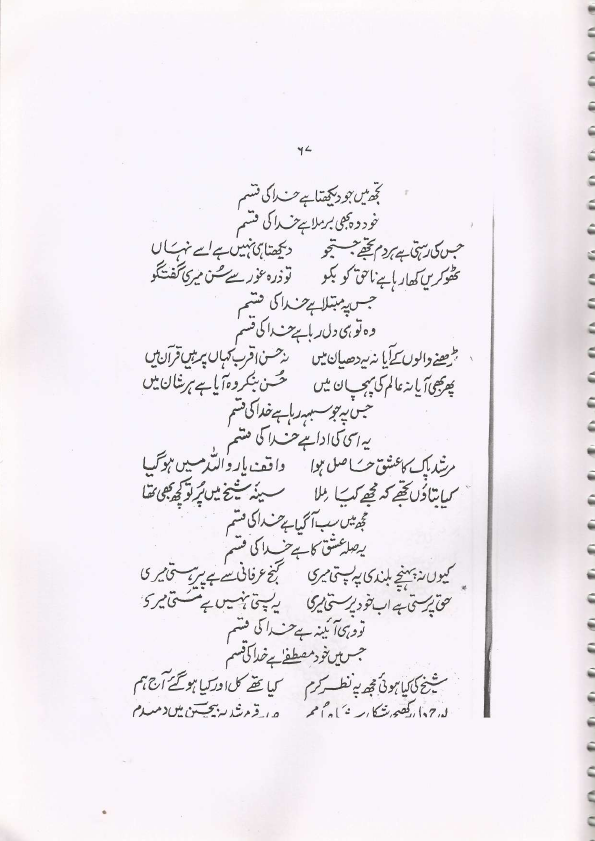 ۶۷
تجھ میں جو دیکھتا ہے خدا کی قسم
خود وہ بھی برملا ہے خدا کی قسم
جس کی رہتی ہے ہر دم تجھے جستجو دیکھتا ہی نہیں ہے اسے نہاں
ٹھوکریں کھا رہا ہے ناحق کو بکو تو ذرہ غور سے سُن میری گفتگو
جس پہ مبتلا ہے خدا کی قسم
وہ تو ہی دل ربا ہے خدا کی قسم
پڑھنے والوں کے آیا نہ یہ دھیان میں نحن اقرب کہاں پر ہیں قرآن میں
پھر بھی آیا نہ عالم کی پہچان میں حُسن بنکر وہ آیا ہے ہر شان میں
جس پہ جو سہہ رہا ہے خدا کی قسم
یہ اسی کی ادا ہے خدا کی قسم
مرشد پاک کا عشق حاصل ہوا واقف یار واللہ میں ہو گیا
کیا بتاؤں تجھے کہ مجھے کیا مِلا سینۂ شیخ میں پُر تو کچھ بھی تھا
مجھ میں سب آگیا ہے خدا کی قسم
یہ صلہ عشق کا ہے خدا کی قسم
کیوں نہ پہنچے بلندی پہ پستی میری گنج عرفانی سے ہے پیر ہستی میری
حق پرستی ہے اب خود پرستی میری یہ پستی نہیں ہے مستی میری
تو وہی آئینہ ہے خدا کی قسم
جس میں خود مصطفےٰ ہے خدا کی قسم
شیخ کی کیا ہوئی مجھ پہ نظر کرم کیا تھے کل اور کیا ہو گئے آج ہم
لوح دل